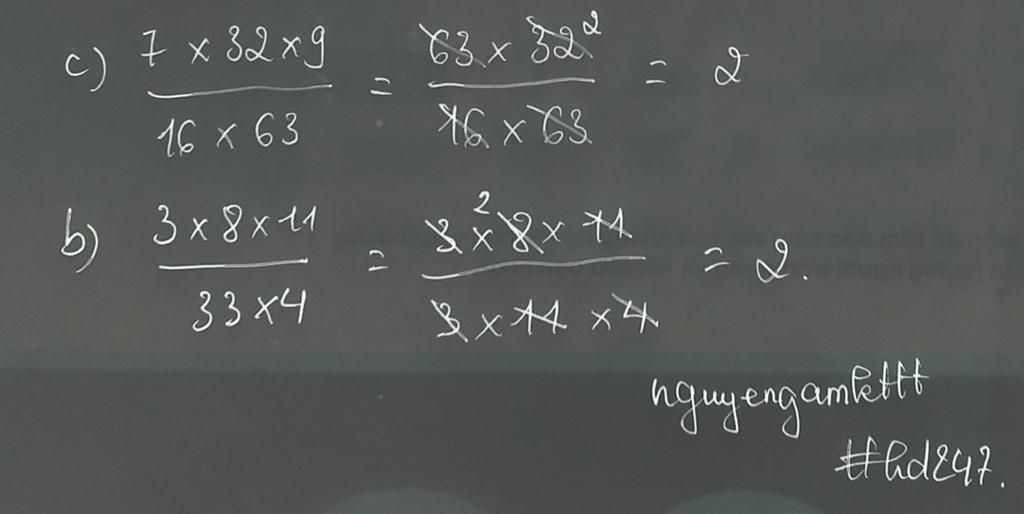 c) 7 x 32 x 9 / 16 x 63 = 63 x 32 2 / 16 x 63 = 2
b) 3 x 8 x 11 / 33 x 4 = 3 x 8 2 x 11 / 3 x 11 x 4 = 2.
nguyengamkttt
#hd247.